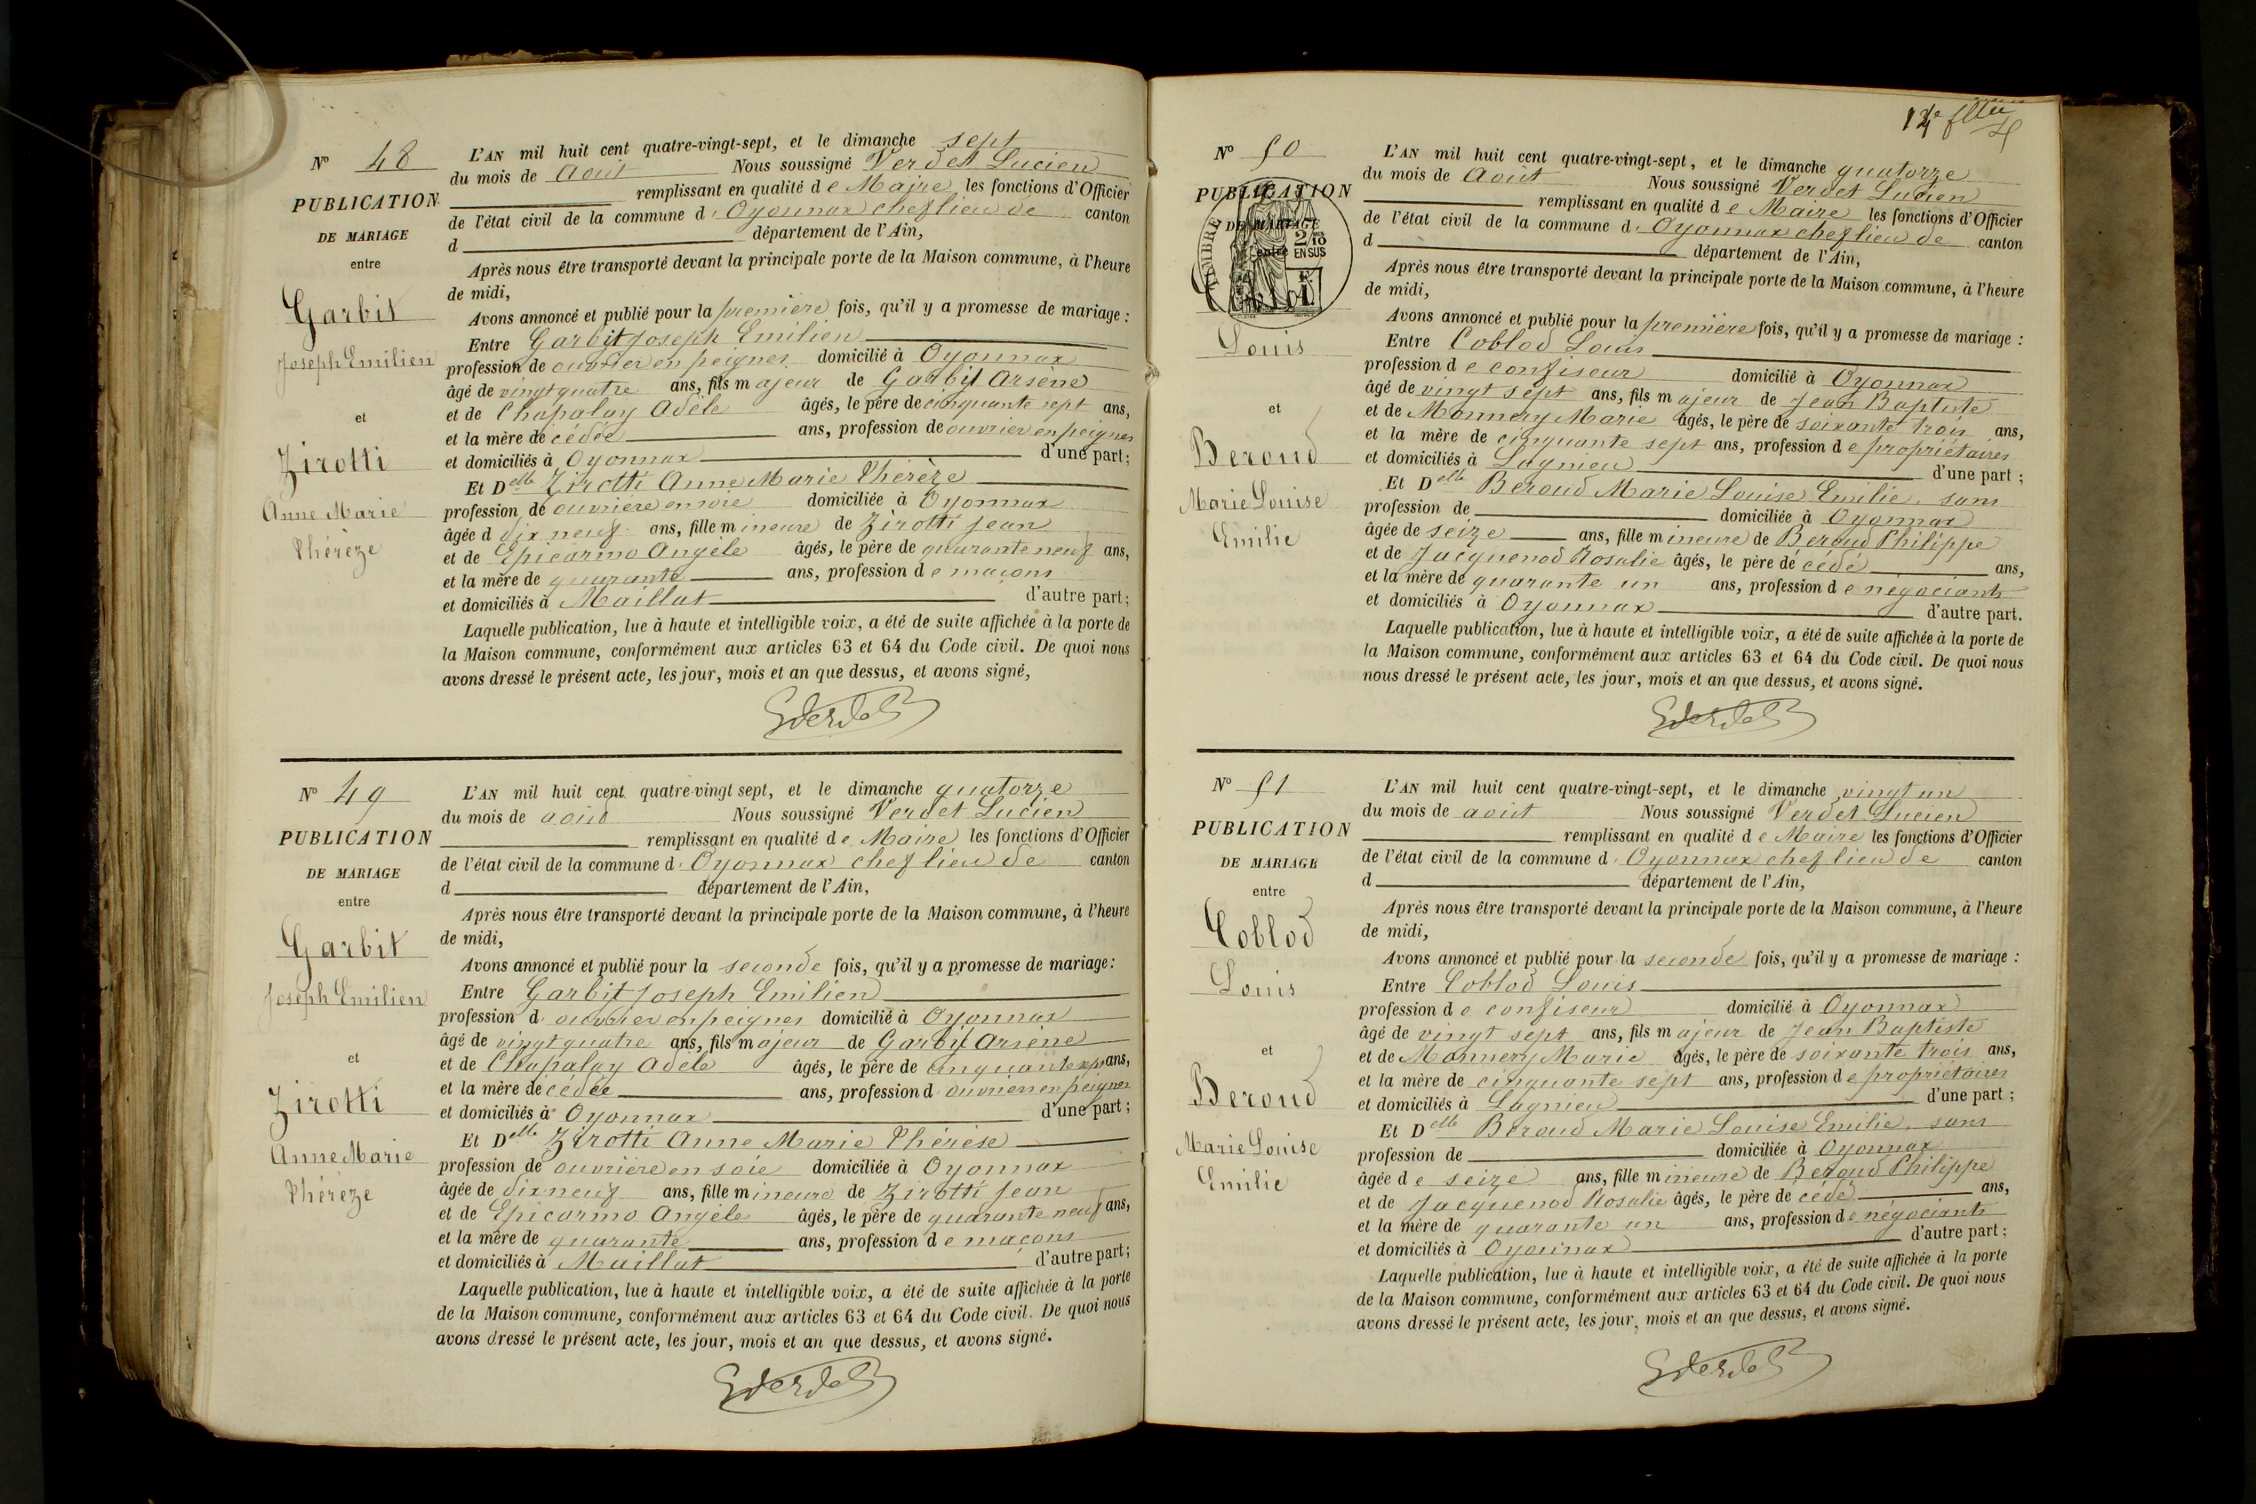 N° 48
PUBLICATION
DE MARIAGE
entre
Garbit
Joseph Emilien
et
Zirotti
Anne Marie
Thérèze
L'AN mil huit cent quatre-vingt-sept, et le dimanche sept
du mois de Août Nous soussigné Verdet Lucien
remplissant en qualité de Maire les fonctions d'Officier
de l'état civil de la commune d'Oyonnax chef lieu de canton
d département de l'Ain,
Après nous être transporté devant la principale porte de la Maison commune, à l'heure
de midi,
Avons annoncé et publié pour la première fois, qu'il y a promesse de mariage :
Entre Garbit Joseph Emilien
profession de ouvrier en peignes domicilié à Oyonnax
âgé de vingt quatre ans, fils majeur de Garbit Arsène
et de Chapalay Adèle âgés, le père de cinquante sept ans,
et la mère décédée ans, profession de ouvrier en peignes
et domiciliés à Oyonnax d'une part ;
Et Delle Zirotti Anne Marie Thérèze
profession de ouvrière en soie domiciliée à Oyonnax
âgée d dix neuf ans, fille mineure de Zirotti Jean
et de Epicarmo Angèle âgés, le père de quarante neuf ans,
et la mère de quarante ans, profession de maçons
et domiciliés à Maillat d'autre part ;
Laquelle publication, lue à haute et intelligible voix, a été de suite affichée à la porte de
la Maison commune, conformément aux articles 63 et 64 du Code civil. De quoi nous
avons dressé le présent acte, les jour, mois et an que dessus, et avons signé,
N° 49
PUBLICATION
DE MARIAGE
entre
Garbit
Joseph Emilien
et
Zirotti
Anne Marie
Thérèze
L'AN mil huit cent quatre-vingt sept, et le dimanche quatorze
du mois de août Nous soussigné Verdet Lucien
remplissant en qualité de Maire les fonctions d'Officier
de l'état civil de la commune d'Oyonnax chef lieu de canton
d département de l'Ain,
Après nous être transporté devant la principale porte de la Maison commune, à l'heure
de midi,
Avons annoncé et publié pour la seconde fois, qu'il y a promesse de mariage :
Entre Garbit Joseph Emilien
profession d'ouvrier en peignes domicilié à Oyonnax
âgé de vingt quatre ans, fils majeur de Garbit Arsène
et de Chapalay Adèle âgés, le père de cinquante sept ans,
et la mère décédée ans, profession d'ouvrier en peignes
et domiciliés à Oyonnax d'une part ;
Et Delle Zirotti Anne Marie Thérèse
profession de ouvrière en soie domiciliée à Oyonnax
âgée de dix neuf ans, fille mineure de Zirotti Jean
et de Epicarmo Angèle âgés, le père de quarante neuf ans,
et la mère de quarante ans, profession de maçons
et domiciliés à Maillat d'autre part ;
Laquelle publication, lue à haute et intelligible voix, a été de suite affichée à la porte
de la Maison commune, conformément aux articles 63 et 64 du Code civil. De quoi nous
avons dressé le présent acte, les jour, mois et an que dessus, et avons signé.
N° 50
PUBLICATION
DE MARIAGE
entre
TIMBRE
2/10
EN SUS
Coblod
Louis
et
Beroud
Marie Louise
Emilie
L'AN mil huit cent quatre-vingt-sept, et le dimanche quatorze
du mois de Août Nous soussigné Verdet Lucien
remplissant en qualité de Maire les fonctions d'Officier
de l'état civil de la commune d'Oyonnax chef lieu de canton
d département de l'Ain,
Après nous être transporté devant la principale porte de la Maison commune, à l'heure
de midi,
Avons annoncé et publié pour la première fois, qu'il y a promesse de mariage :
Entre Coblod Louis
profession de confiseur domicilié à Oyonnax
âgé de vingt sept ans, fils majeur de Jean Baptiste
et de Monnery Marie âgés, le père de soixante trois ans,
et la mère de cinquante sept ans, profession de propriétaires
et domiciliés à Lagnieu d'une part ;
Et Delle Beroud Marie Louise Emilie, sans
profession de domiciliée à Oyonnax
âgée de seize ans, fille mineure de Beroud Philippe
et de Jacquenod Rosalie âgés, le père décédé ans,
et la mère de quarante un ans, profession de négociants
et domiciliés à Oyonnax d'autre part.
Laquelle publication, lue à haute et intelligible voix, a été de suite affichée à la porte de
la Maison commune, conformément aux articles 63 et 64 du Code civil. De quoi nous
nous dressé le présent acte, les jour, mois et an que dessus, et avons signé.
N° 51
PUBLICATION
DE MARIAGE
entre
Coblod
Louis
et
Beroud
Marie Louise
Emilie
L'AN mil huit cent quatre-vingt-sept, et le dimanche vingt un
du mois de août Nous soussigné Verdet Lucien
remplissant en qualité de Maire les fonctions d'Officier
de l'état civil de la commune d'Oyonnax chef lieu de canton
d département de l'Ain,
Après nous être transporté devant la principale porte de la Maison commune, à l'heure
de midi,
Avons annoncé et publié pour la seconde fois, qu'il y a promesse de mariage :
Entre Coblod Louis
profession de confiseur domicilié à Oyonnax
âgé de vingt sept ans, fils majeur de Jean Baptiste
et de Monnery Marie âgés, le père de soixante trois ans,
et la mère de cinquante sept ans, profession de propriétaires
et domiciliés à Lagnieu d'une part ;
Et Delle Beroud Marie Louise Emilie, sans
profession de domiciliée à Oyonnax
âgée de seize ans, fille mineure de Beroud Philippe
et de Jacquenod Rosalie âgés, le père décédé ans,
et la mère de quarante un ans, profession de négociants
et domiciliés à Oyonnax d'autre part ;
Laquelle publication, lue à haute et intelligible voix, a été de suite affichée à la porte
de la Maison commune, conformément aux articles 63 et 64 du Code civil. De quoi nous
avons dressé le présent acte, les jour, mois et an que dessus, et avons signé.